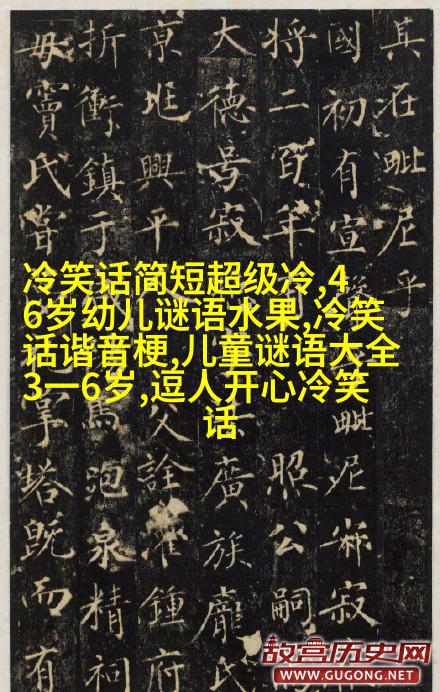 其在毗尼乎
國初有宣
毗尼宗寂
將二百年
照公嗣
大德号寂
廣族龐氏
京兆興平
父詮灌鍾府
折衝鎮于
馬泡泉精祠
毋竇氏嘗
掌塔既而有
冷笑话简短超级冷,4
6岁幼儿谜语水果,冷笑
话谐音梗,儿童谜语大全
3一6岁,逗人开心冷笑
话
故宫历史网
WWW.GUGONG.NET